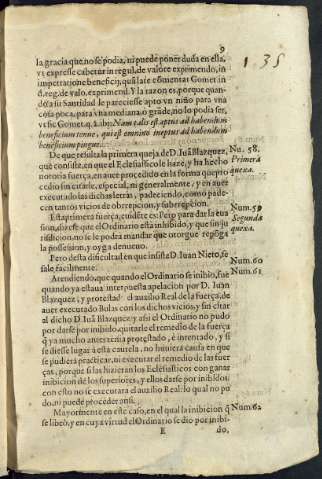 9
135
la gracia que no se podia, ni puede poner duda en ella,
vt expresse cabetur in regul. de valore exprimendo, in
impetratione beneficij, qual late comentat Gomet in
d. reg. de valo. exprimend. Y la razon es, porque quan-
do a su Santidad le pareciesse apto vn niño para vna
cosa poca, para vna mediana, o grāde, no lo podia ser,
vt sic Gomet. q. 2. ibi: Nam talis est aptus ad habendum
beneficium tenue, qui est omnino ineptus ad habendum
beneficium pingue.
De que resulta la primera quexa de D. Iuā Blazquez, Nu. 58.
que consiste, en que el Eclesiastico le haze, y ha hecho Primera
notoria fuerça, en auer procedido en la forma que pro quexa.
cedio sin citarle, especial, ni generalmente, y en auer
executado las dichas letras, padeciendo, como pade-
cen tantos vicios de obrrepcion, y subrepcion.
Esta primera fuerça, cuidete ex Peip. para dar la eua Num. 59
sion, dize que el Ordinario està inhibido, y que sin ju Segunda
risdicion, no se le podra mandar que otorgue reponga quexa.
la possession, y oyga denueuo.
Pero desta dificultad en que insiste D. Iuan Nieto, se Num. 60
sale facilmente.
Atendiendo, que quando el Ordinario se inibio, fue Num. 61
quando ya estaua interpuesta apelacion por D. Iuan
Blazquez, y protestado el auxilio Real de la fuerça, de
auer executado Bulas con los dichos vicios, y sin citar
al dicho D. Iuā Blazquez: y assi el Ordinario no pudo
por darse por inibido, quitarle el remedio de la fuerça
q̄ ya mucho antes tenia protestado, è intentado, y si
se diesse lugar à esta cautela, no huuiera causa en que
se pudiera practicar, ni executar el remedio de las fuer
ças, porque si las hizieran los Eclesiasticos con ganar
inibicion de los superiores, y ellos darse por inibidos,
con esto no se executara el auxilio Real: lo qual no pu
do, ni puede proceder ansi.
Mayormente en este caso, en el qual la inibicion q̄ Num. 62
se libró, y en cuya virtud el Ordinario se dio por inibi-
E do,